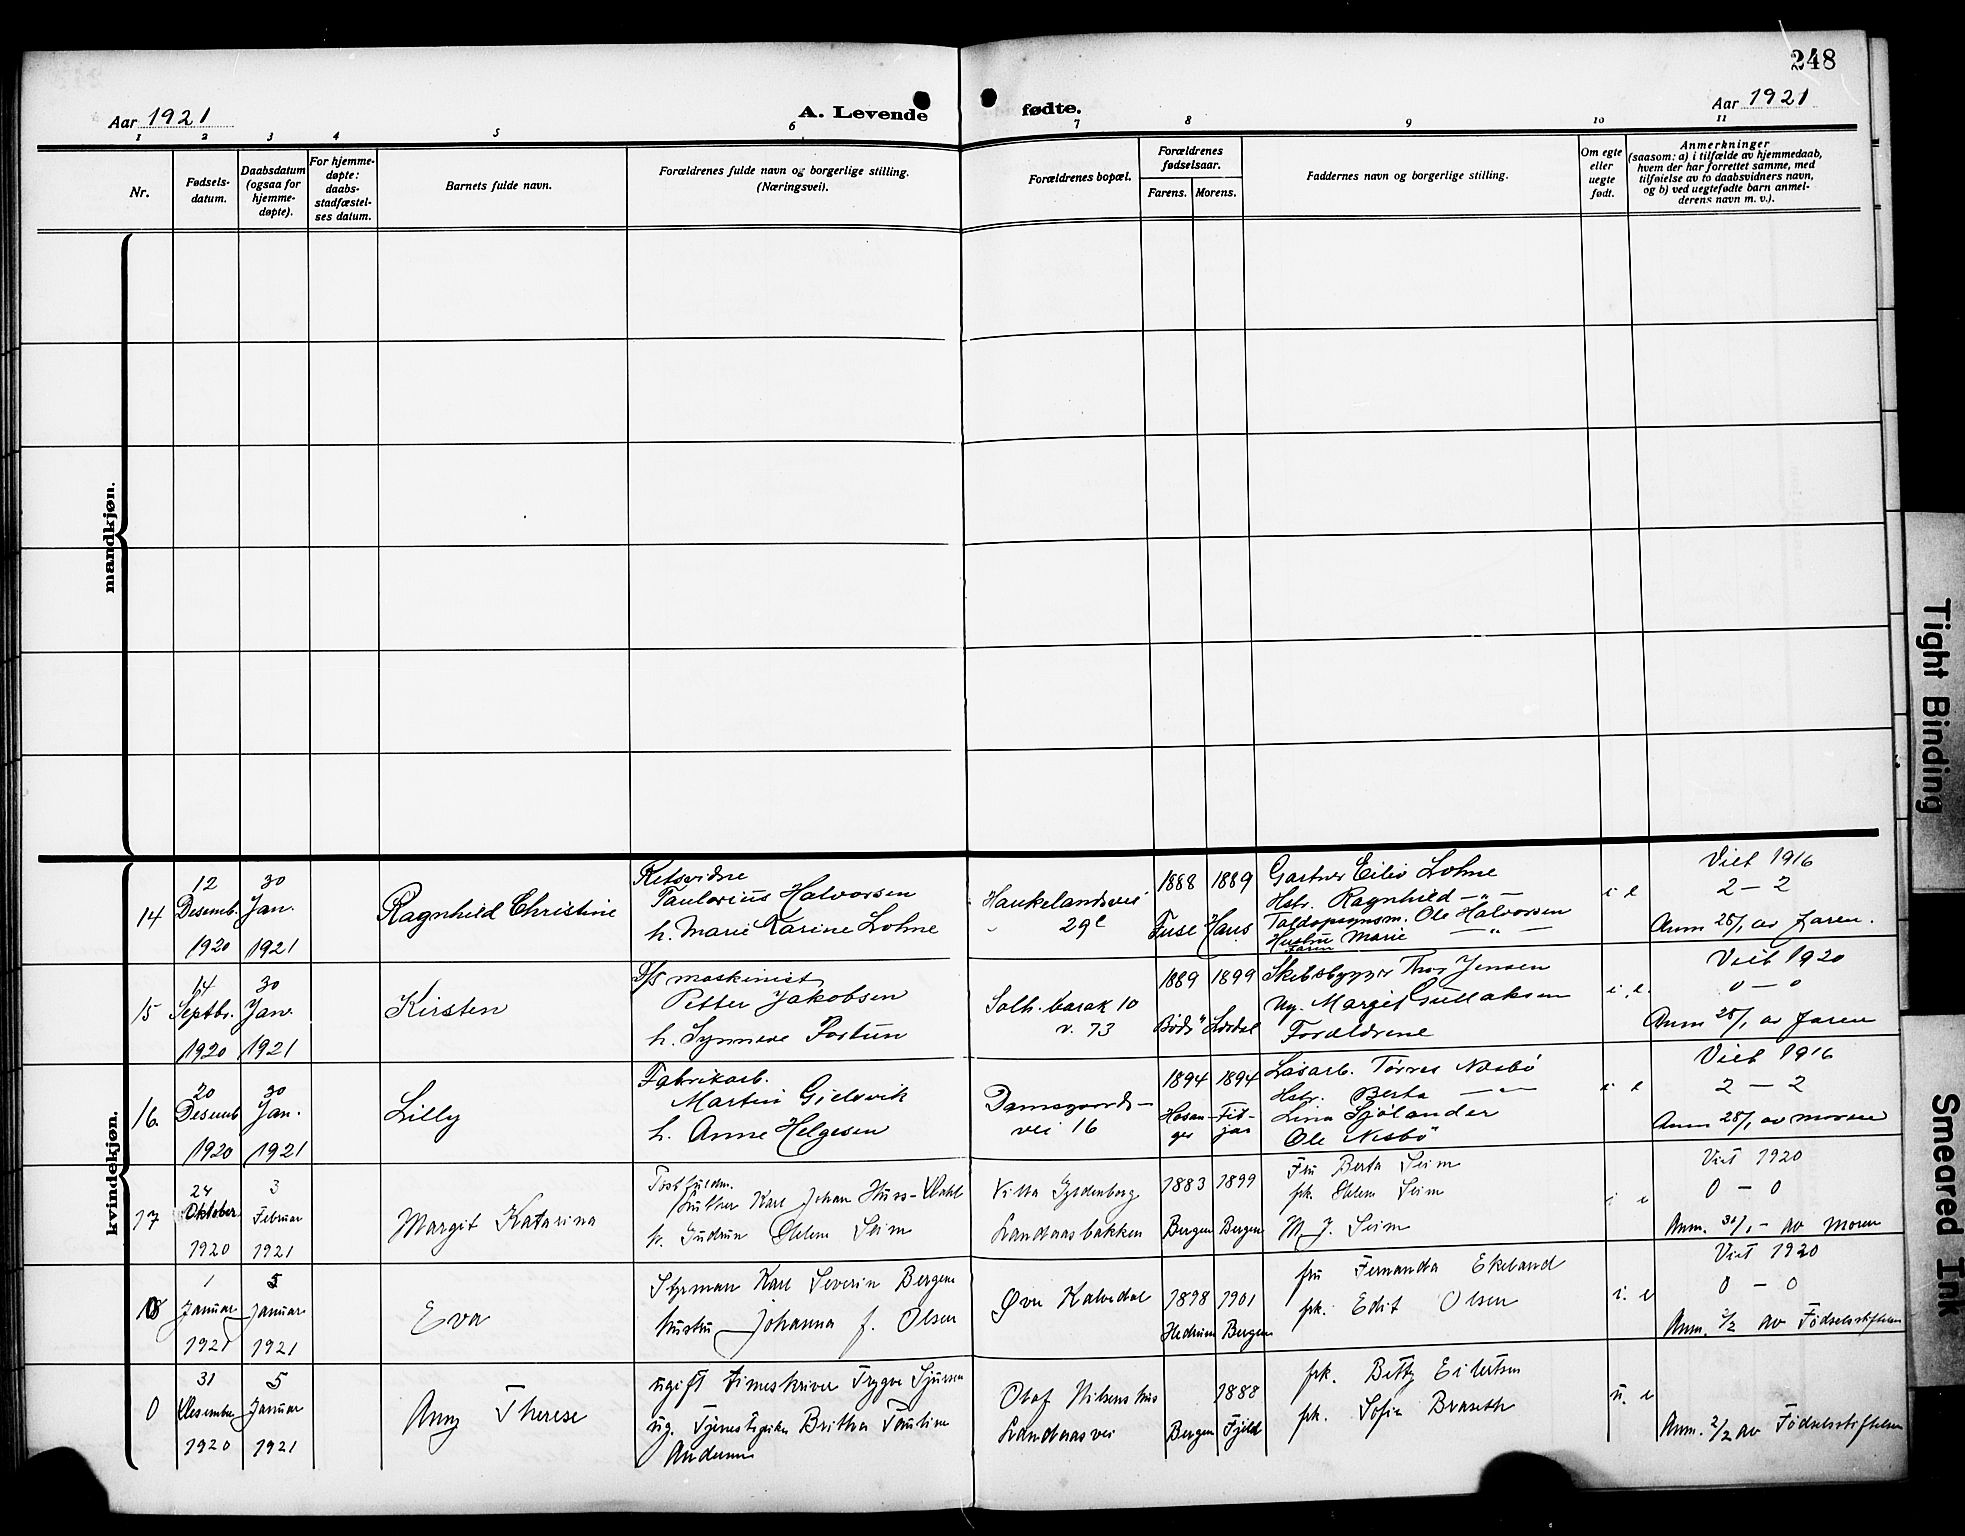 248
Aar 1921
A. Levende fødte.
Aar 1921
1 2 3 4 5 6 7 8 9 10 11
Nr.
Fødsels-
datum.
Daabsdatum
(ogsaa for
hjemme-
døpte).
For hjemme-
døpte:
daabs-
stadfæstel-
ses datum.
Barnets fulde navn.
Forældrenes fulde navn og borgerlige stilling.
(Næringsvei).
Forældrenes bopæl.
Forældrenes
fødselsaar.
Farens. Morens.
Faddernes navn og borgerlige stilling.
Om egte
eller
uegte
født.
Anmerkninger
(saasom: a) i tilfælde av hjemmedaab,
hvem der har forrettet samme, med
tilføielse av to daabsvidners navn,
og b) ved uegtefødte barn anmel-
derens navn m. v.).
mandkjøn.
kvindekjøn.
14
12
Desemb.
1920
30
Jan.
1921
Ragnhild Christine
Halvorsen
h. Marie Karine Lohne
Haukelandsvei
29c
1888
Fuse
1889
Gartner Eiliv Lohne
Hstr. Ragnhild —"—
Ole Halvorsen
Hustru Marie —"—
Faren
i e
Viet 1916
2 — 2
Anm 28/1 av faren.
15
14
Septbr.
1920
30
Jan.
1921
Kirsten
D/S maskinist
Petter Jakobsen
h. Synneve Fortun
Solh. barak 10
v. 73
1889
Bodö
1899
Skibsbygger Thor Jensen
Ug. Margit Gullaksen
Forældrene
i. e.
Viet 1920
0 — 0
Anm 28/1 av faren
16.
20
Desemb
1920
30
Jan.
1921
Lilly
Fabrikarb.
Martin Gielsvik
h. Anne Helgesen
Damsgaards-
vei 16
1894
Hosan-
ger
1894
Fit-
jar
Løsarb. Tørres Nesbö
Hstr. Berta —"—
Lina Sjölander
Ole Nesbö
i e
Viet 1916
2 — 2
Anm 28/1 av moren
17
24
Oktober
1920
3
Februar
1921
Margit Katarina
Karl Johan Huss-Dahl
h. Gudrun Seim
Villa Gyldenborg
Landaasbakken
1883
Bergen
1899
Bergen
Fru Berta Seim
frk. Seim
M. J. Seim
i e
Viet 1920
0 — 0
Anm. 31/1 - av moren
18
1
Januar
1921
5
Januar
1921
Eva
Styrman Karl Severin Bergen
hustru Johanna f. Olsen
Øvre Kalvedal
1898
Hedrum
1901
Bergen
fru Fernanda Ekeland
frk. Edit Olsen
i. e
Viet 1920
0 — 0
Anm. 2/2 av Fødselsstiftelsen
0
31
Desember
1920
5
Januar
1921
Anny Therese
ugift timeskriver Trygve Sjursen
ug. Britha Pauline
Andersen
Olaf Nilsens hus
Landaasvei
Bergen
1888
Fjeld
frk. Betty Eilertsen
frk. Sofie
u. e
Anm. 2/2 av Fødselsstiftelsen
Tight Binding
Smeared Ink